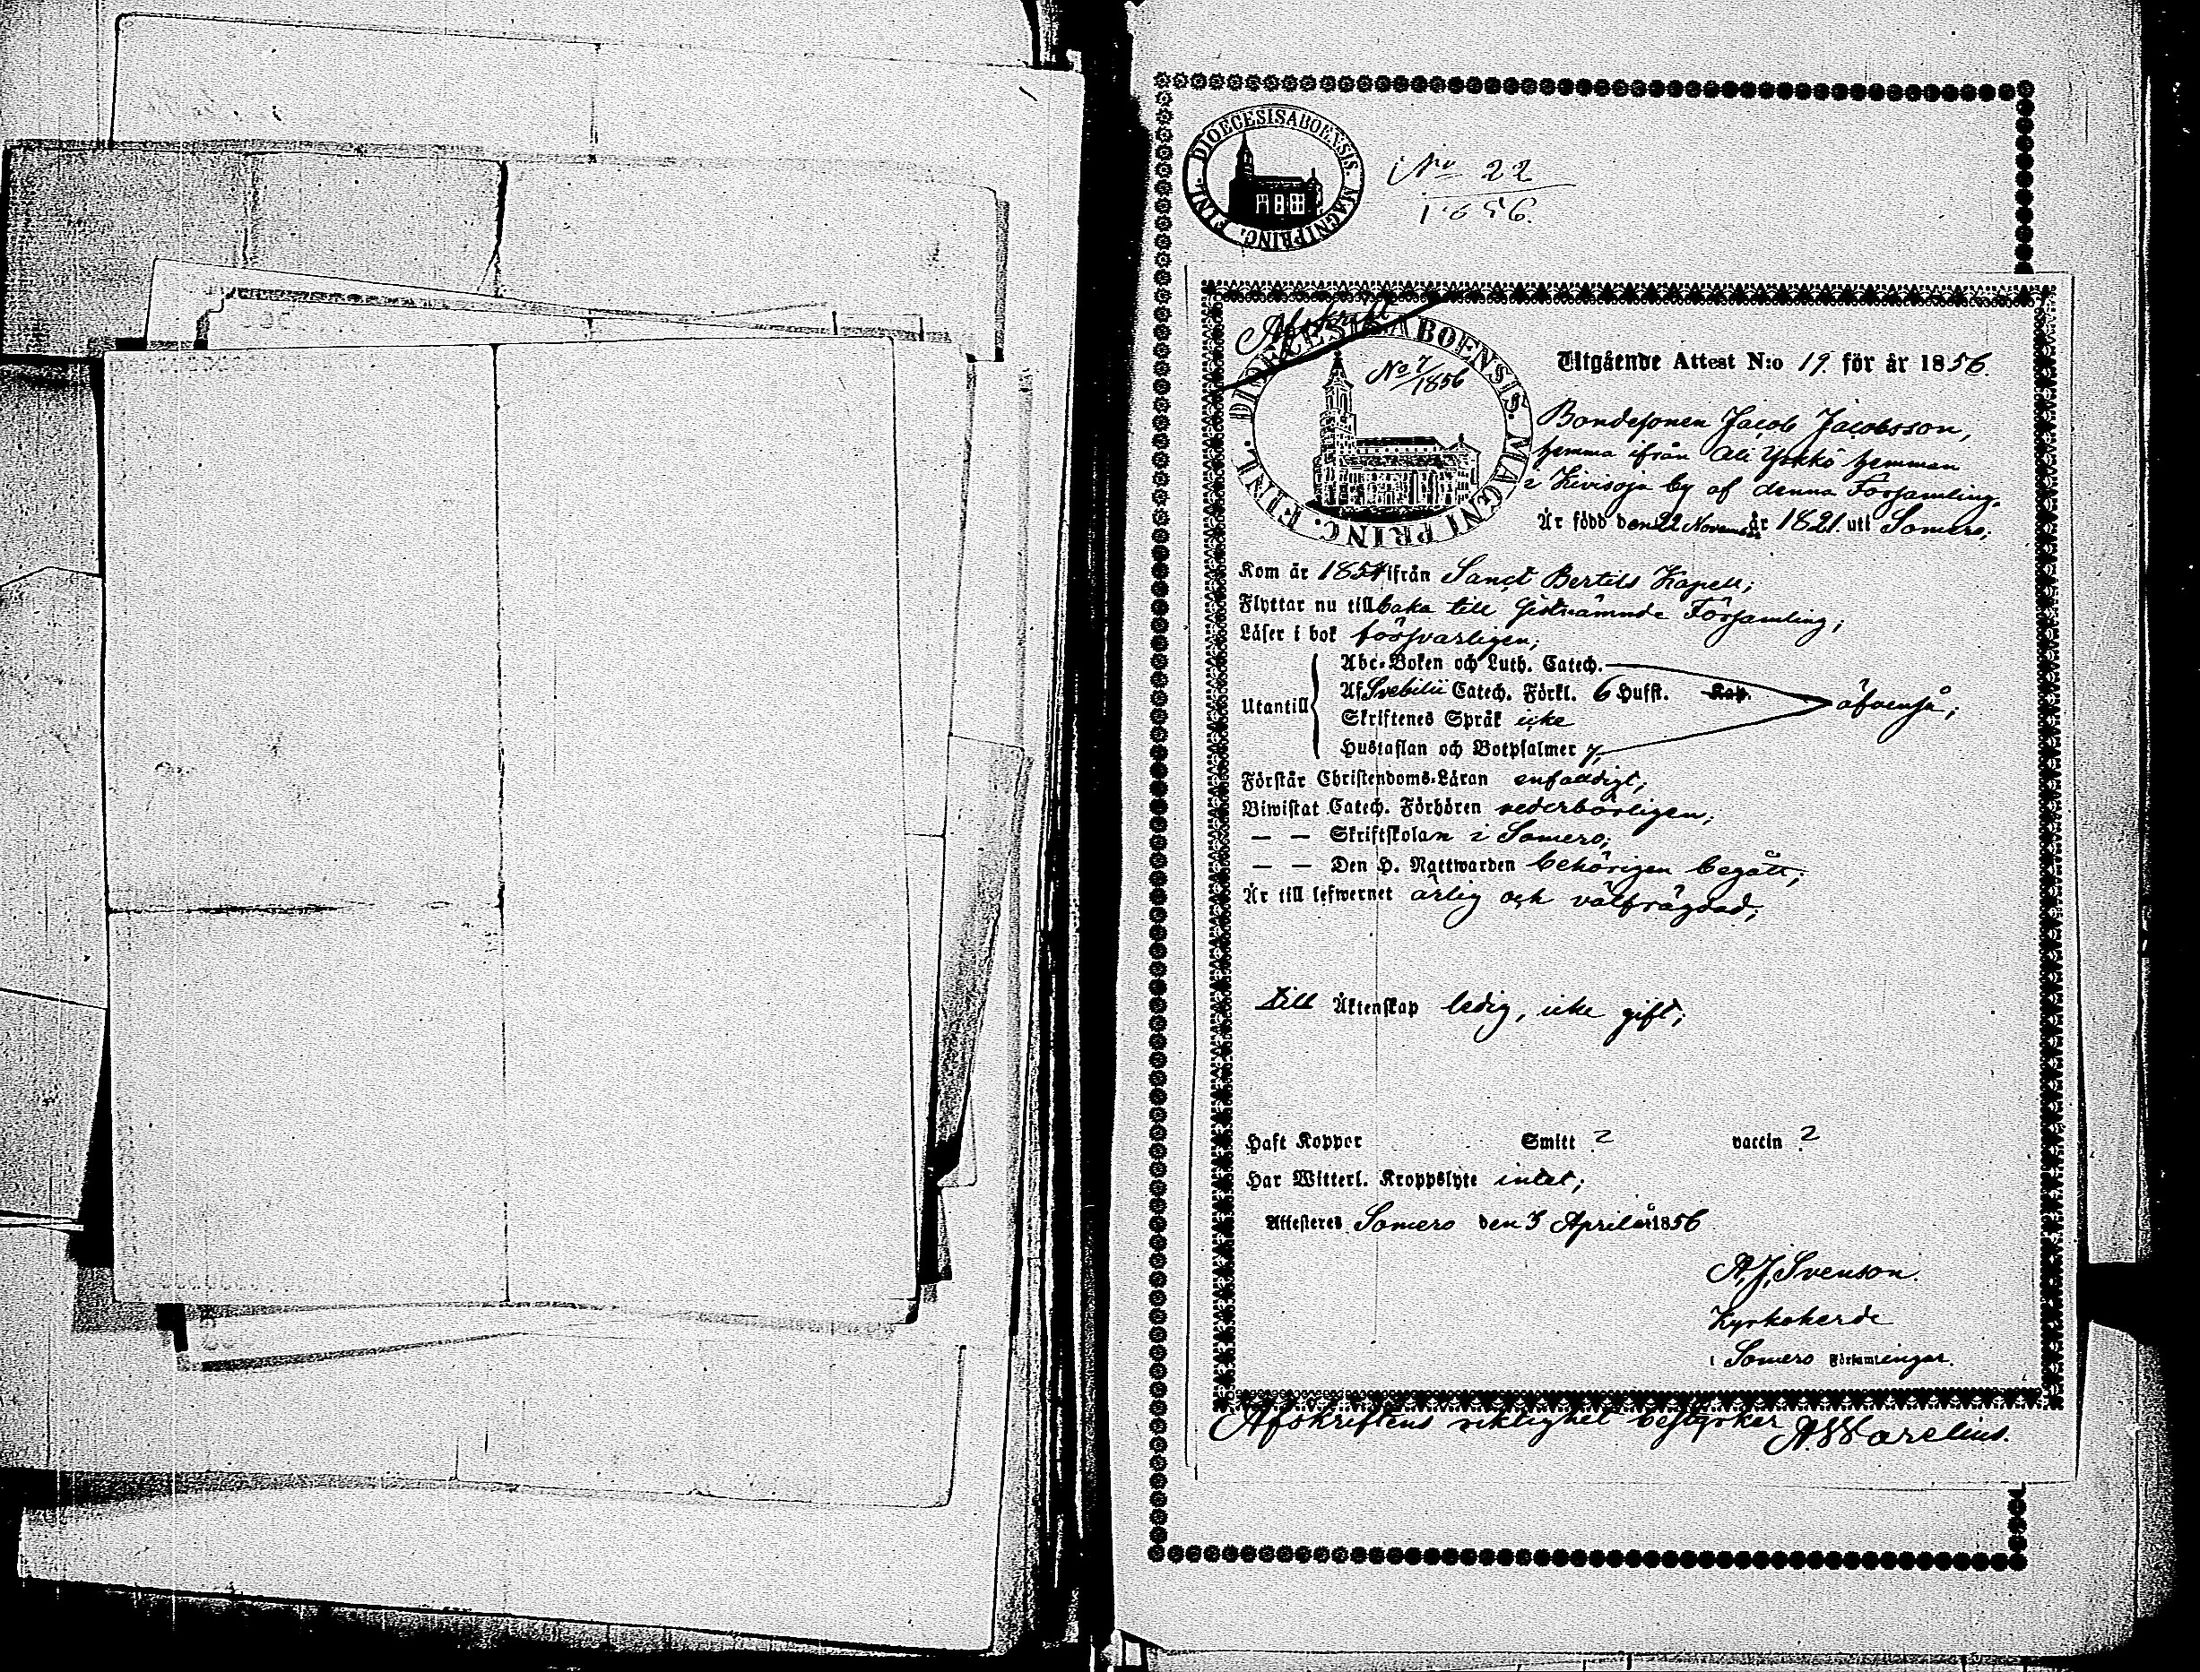 DIOECESIS ABOENSIS. MAGNI PRINC. FINL.
No 22
1856.
Afskrift
DIOECESIS ABOENSIS. MAGNI PRINC. FINL.
No 7/1856
Utgående Attest N:o 19. för år 1856.
Bondesonen Jacob Jacobsson,
hemma ifrån Ali Yskkö hemman
i Kivisoja by af denna Församling.
Är född den 22 Novemb. år 1821. uti Somero;
Kom år 1854 ifrån Sanct Bertils Kapell;
Flyttar nu tillbaka till sistnämnde Församling;
Läser i bok försvarligen;
Utantill
Abc-Boken och Luth. Catech.
Af Svebilii Catech. Förkl. 6 Hufst. Kap.
äfvenså;
Skriftenes Språk icke
Hustaflan och Botpsalmer 7,
Förstår Christendoms-Läran enfaldigt;
Biwistat Catech. Förhören vederbörligen;
— — Skriftskolan i Somero;
— — Den H. Nattwarden behörigen begått;
Är till lefwernet ärlig och välfrägdad;
till Äktenskap ledig, icke gift;
Haft Koppor Smitt ? vaccin ?
Har Witterl. Kroppslyte intet;
Attesteres Somero den 3 April år 1856
A. J. Svenson.
Kyrkoherde
i Somero Församlingar.
Afskriftens riktighet bestyrker A. Warelius.